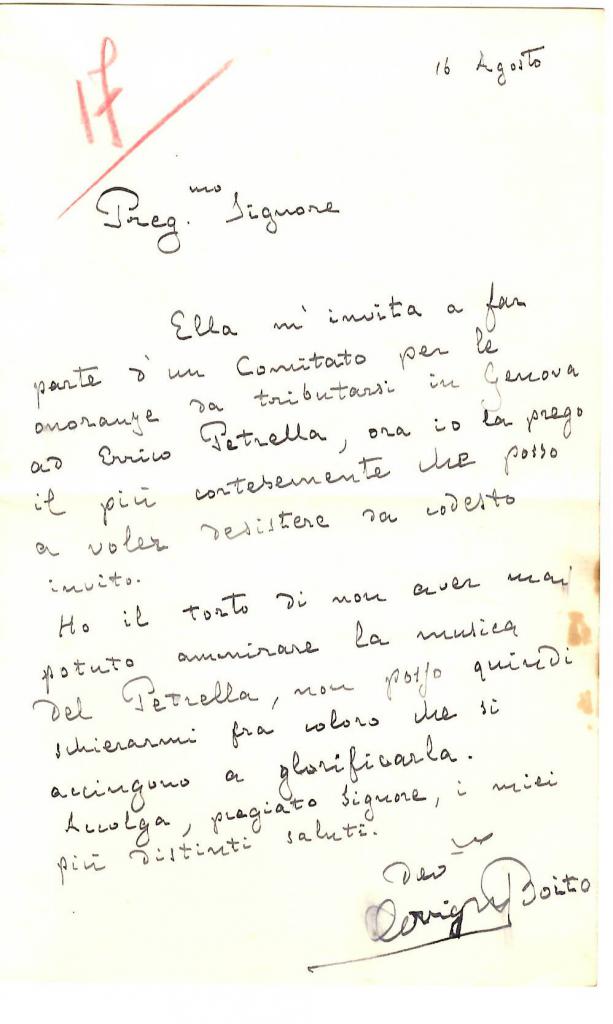 17
16 Agosto
Preg.mo Signore
Ella m'invita a far
parte d'un Comitato per le
onoranze da tributarsi in Genova
ad Errico Petrella, ora io la prego
il più cortesemente che posso
a voler desistere da codesto
invito.
Ho il torto di non aver mai
potuto ammirare la musica
del Petrella, non posso quindi
schierarmi fra coloro che si
accingono a glorificarla.
Accolga, pregiato Signore, i miei
più distinti saluti.
Dev
Arrigo Boito